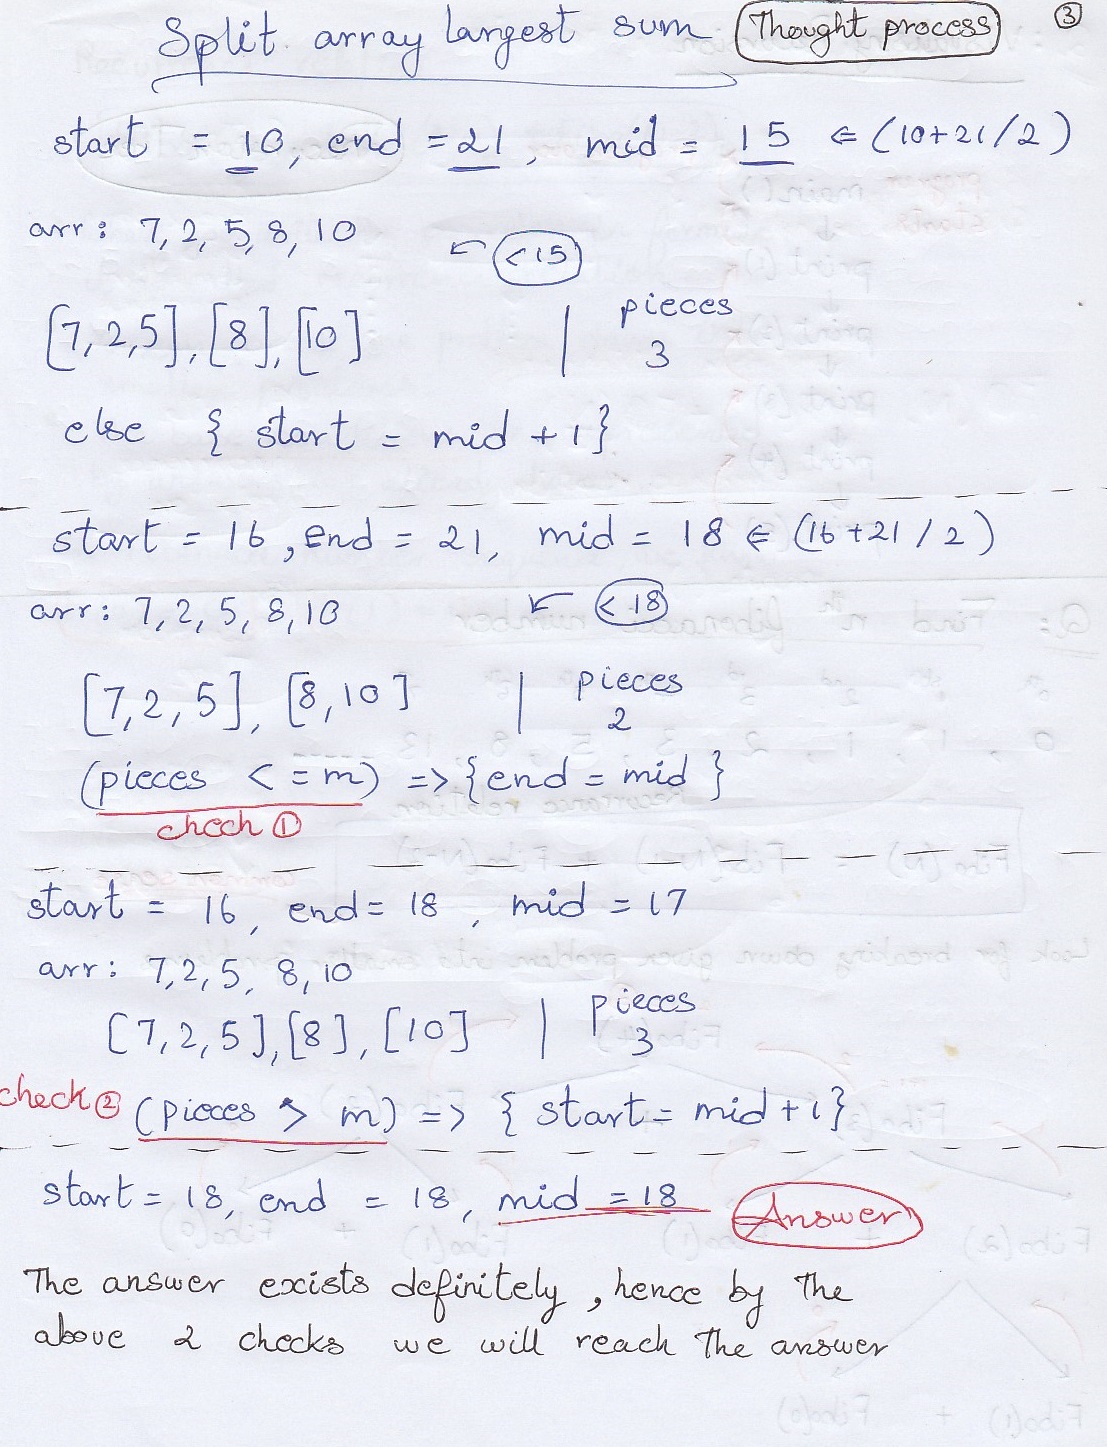 Split array largest sum (Thought process) ③
start = 10, end = 21, mid = 15 ⇐ (10+21/2)
arr: 7, 2, 5, 8, 10 ← <15
[7, 2, 5], [8], [10] | pieces
3
else { start = mid + 1 }
start = 16, End = 21, mid = 18 ⇐ (16+21/2)
arr: 7, 2, 5, 8, 10 ← < 18
[7, 2, 5], [8, 10] | pieces
2
(pieces <= m) => { end = mid }
chech ①
start = 16, end = 18, mid = 17
arr: 7, 2, 5, 8, 10
[7, 2, 5], [8], [10] | pieces
3
check ② (pieces > m) => { start = mid + 1 }
start = 18, end = 18, mid = 18 Answer
The answer exists definitely, hence by the
above 2 checks we will reach the answer